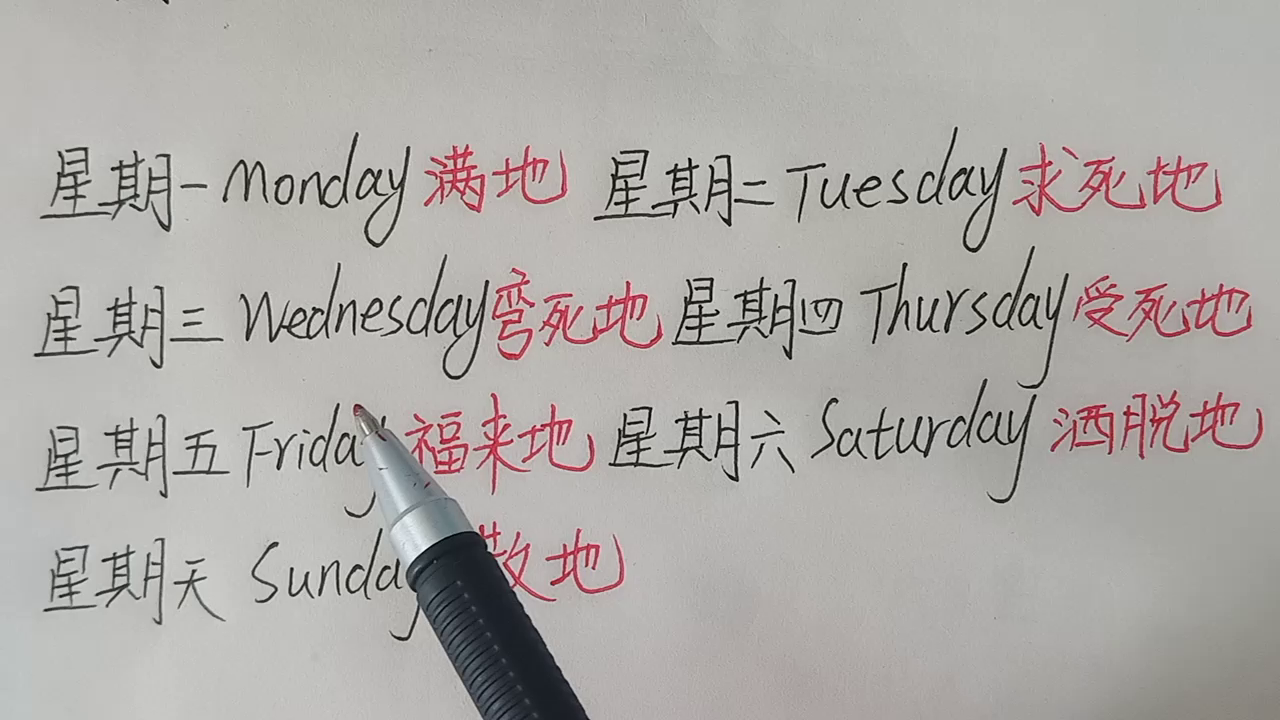 星期一 Monday 满地 星期二 Tuesday 求死地
星期三 Wednesday 弯死地 星期四 Thursday 受死地
星期五 Friday 福来地 星期六 Saturday 洒脱地
星期天 Sunday 散地